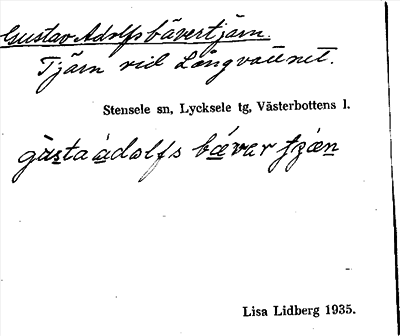 Gustav Adolfsbävertjärn.
Tjärn vid Långvattnet.
Stensele sn, Lycksele tg, Västerbottens l.
gùsta àdolfs bǽvar tjæn
Lisa Lidberg 1935.